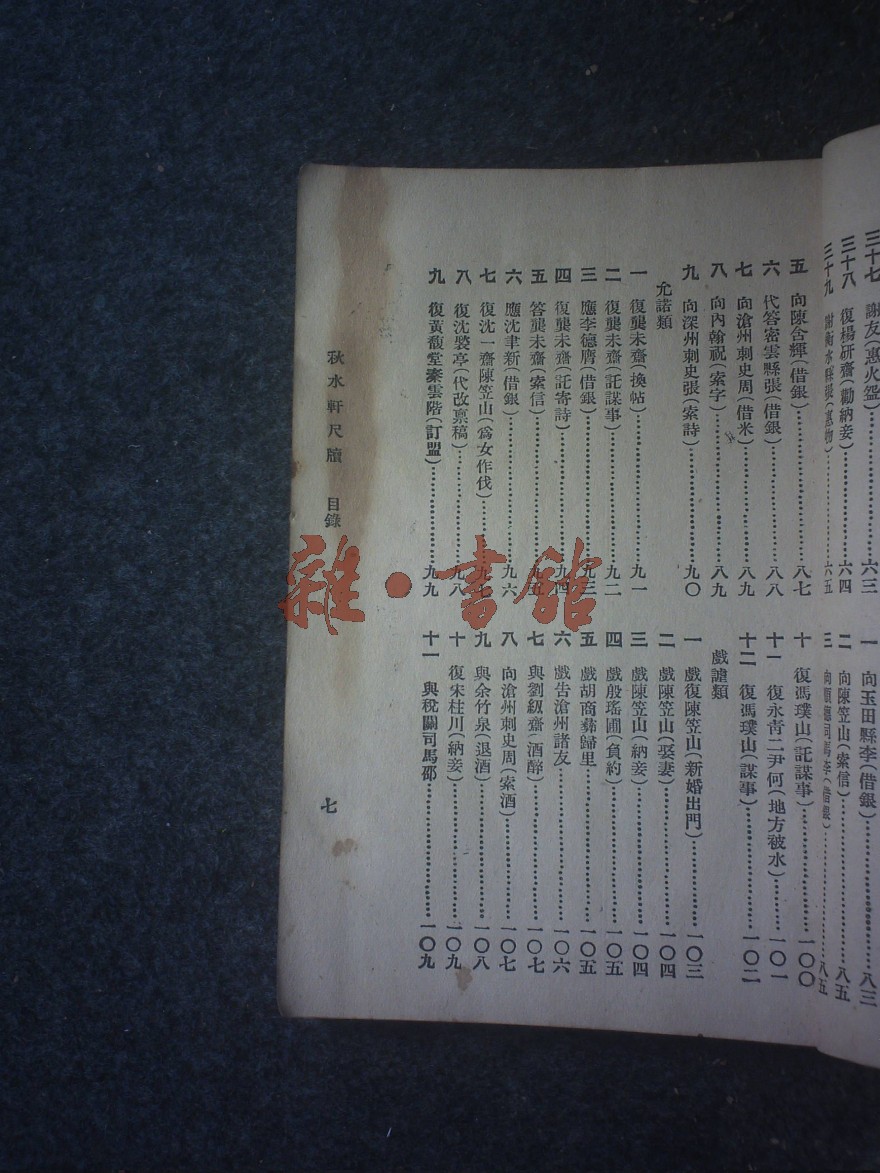 三十七 謝友(惠火盆)……六三
三十八 復楊研齋(勸納妾)……六四
三十九 謝衡水縣張(惠物)……六五
一 向玉田縣李(借銀)……八三
二 向陳笠山(索信)……八五
三 向順德司馬李(借銀)……八五
五 向陳含輝(借銀)……八七
六 代答密雲縣張(借銀)……八八
七 向滄州刺史周(借米)……八九
八 向內翰祝(索字)……八九
九 向深州刺史張(索詩)……九〇
允諾類
一 復龔未齋(換帖)……九一
二 復龔未齋(託謀事)……九二
三 應李德膺(借銀)……九三
四 復龔未齋(託寄詩)……九四
五 答龔未齋(索信)……九五
六 應沈聿新(借銀)……九六
七 復沈一齋陳笠山(爲女作伐)……九七
八 復沈褧亭(代改稟稿)……九八
九 復黃馥堂秦雲階(訂盟)……九九
十 復馮璞山(託謀事)……一〇〇
十一 復永青二尹何(地方被水)……一〇一
十二 復馮璞山(謀事)……一〇二
戲謔類
一 戲復陳笠山(新婚出門)……一〇三
二 戲陳笠山(娶妻)……一〇四
三 戲陳笠山(納妾)……一〇四
四 戲殷瑤圃(負約)……一〇五
五 戲胡商彝歸里……一〇五
六 戲告滄州諸友……一〇六
七 與劉紉齋(酒醉)……一〇七
八 向滄州刺史周(索酒)……一〇七
九 與余竹泉(退酒)……一〇八
十 復宋桂川(納妾)……一〇九
十一 與稅關司馬邵……一〇九
秋水軒尺牘 目錄
七
雜·書館